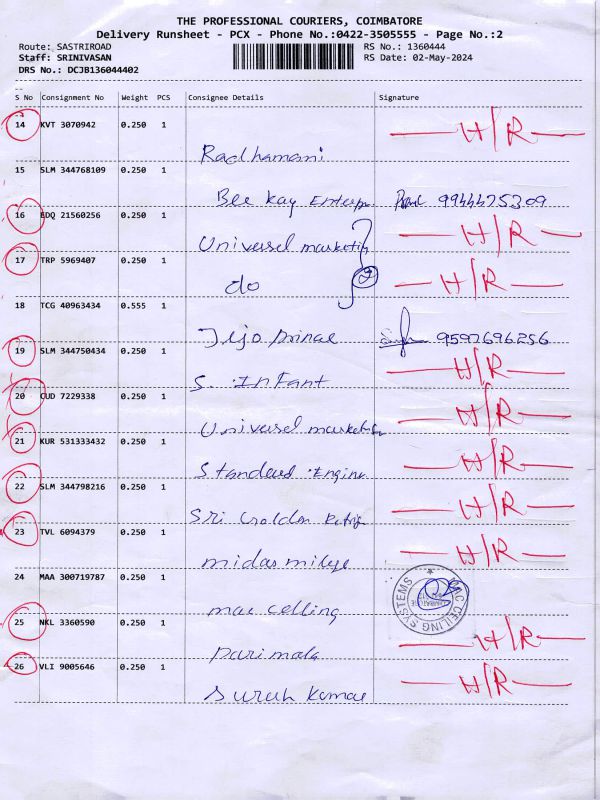 THE PROFESSIONAL COURIERS, COIMBATORE
Delivery Runsheet - PCX - Phone No.:0422-3505555 - Page No.:2
Route: SASTRIROAD RS No.: 1360444
Staff: SRINIVASAN RS Date: 02-May-2024
DRS No.: DCJB136044402
S No Consignment No Weight PCS Consignee Details Signature
14 KVT 3070942 0.250 1 H/R
Radhamani
15 SLM 344768109 0.250 1
Bee Kay Enterp 9944475309
16 EDQ 21560256 0.250 1 H/R
Universel marketing
17 TRP 5969407 0.250 1 H/R
do 2
18 TCG 40963434 0.555 1
Jijo Prince 9597696256
19 SLM 344750434 0.250 1 H/R
S. Infant
20 CUD 7229338 0.250 1 H/R
Universel marketin
21 KUR 531333432 0.250 1 H/R
Standerd Engine
22 SLM 344798216 0.250 1 H/R
Sri Golden Refrig
23 TVL 6094379 0.250 1 H/R
midas
24 MAA 300719787 0.250 1
mac celling
MAC CEILING SYSTEMS
25 NKL 3360590 0.250 1 H/R
Parimala
26 VLI 9005646 0.250 1 H/R
Suresh Kumar